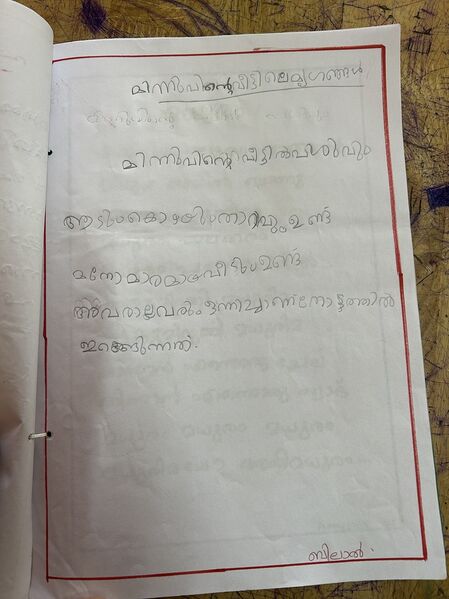 മിന്നുവിന്റെ വീട്ടിലെ മൃഗങ്ങൾ
മിന്നുവിന്റെ വീട്ടിൽ പശുവും
ആടും കൊഴയും താറവും ഉണ്ട്
മനോ മാരമായ വീടും ഉണ്ട്
അവരെല്ലവരും ഒന്നിച്ചാണ് തോട്ടത്തിൽ
ഇറങ്ങുന്നത്.
ബിലാൽ.